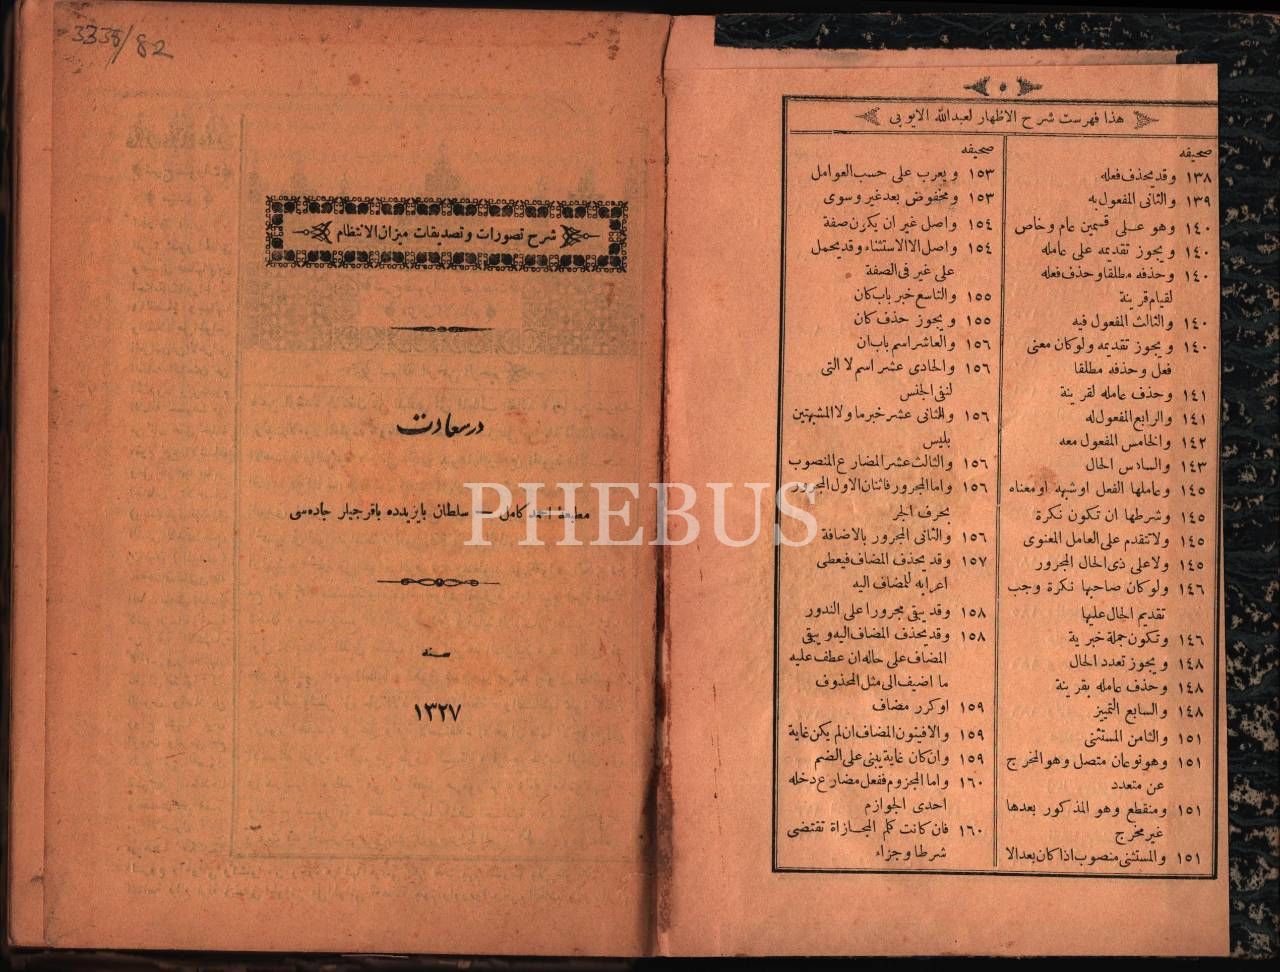 ٥
هذا فهرست شرح الاظهار لعبدالله الايوبى
صحيفه
١٣٨ وقديحذف فعله
١٣٩ والثانى المفعول به
١٤٠ وهو عــلى قسمين عام وخاص
١٤٠ ويجوز تقديمه على عامله
١٤٠ وحذفه مطلقا وحذف فعله
لقيام قرينة
١٤٠ والثالث المفعول فيه
١٤٠ ويجوز تقديمه ولوكان معنى
فعل وحذفه مطلقا
١٤١ وحذف عامله لقرينة
١٤١ والرابع المفعول له
١٤٢ والخامس المفعول معه
١٤٣ والسادس الحال
١٤٥ وعاملها الفعل اوشبهه اومعناه
١٤٥ وشرطها ان تكون نكرة
١٤٥ ولاتتقدم على العامل المعنوى
١٤٥ ولاعلى ذى الحال المجرور
١٤٦ ولوكان صاحبها نكرة وجب
تقديم الحال عليها
١٤٦ وتكون جملة خبرية
١٤٨ ويجوز تعدد الحال
١٤٨ وحذف عامله بقرينة
١٤٨ والسابع التمييز
١٥١ والثامن المستثنى
١٥١ وهو نوعان متصل وهو المخرج
عن متعدد
١٥١ ومنقطع وهو المذكور بعدها
غير مخرج
١٥١ والمستثنى منصوب اذا كان بعد الا
صحيفه
١٥٣ ويعرب على حسب العوامل
١٥٣ ومخفوض بعد غير وسوى
١٥٤ واصل غير ان يكون صفة
١٥٤ واصل الا الاستثناء وقد يحمل
على غير فى الصفة
١٥٥ والتاسع خبر باب كان
١٥٥ ويجوز حذف كان
١٥٦ والعاشر اسم باب ان
١٥٦ والحادى عشر اسم لا التى
لنفى الجنس
١٥٦ والثانى عشر خبر ما ولا المشبهتين
بليس
١٥٦ والثالث عشر المضارع المنصوب
١٥٦ واما المجرور فاثنان الاول المجرور
بحرف الجر
١٥٦ والثانى المجرور بالاضافة
١٥٧ وقد يحذف المضاف فيعطى
اعرابه للمضاف اليه
١٥٨ وقد يبقى مجرورا على الندور
١٥٨ وقد يحذف المضاف اليه ويبقى
المضاف على حاله ان عطف عليه
ما اضيف الى مثل المحذوف
١٥٩ اوكرر مضاف
١٥٩ والا فينون المضاف ان لم يكن غاية
١٥٩ وان كان غاية يبنى على الضم
١٦٠ واما المجزوم ففعل مضارع دخله
احدى الجوازم
١٦٠ فان كانت كلم المجازاة تقتضى
شرطا وجزاء
3335/82
شرح تصورات وتصديقات ميزان الانتظام
درسعادت
مطبعهٔ احمد كامل — سلطان بايزيدده باقرجيلر جاده‌سى
سنه
١٣٢٧
PHEBUS